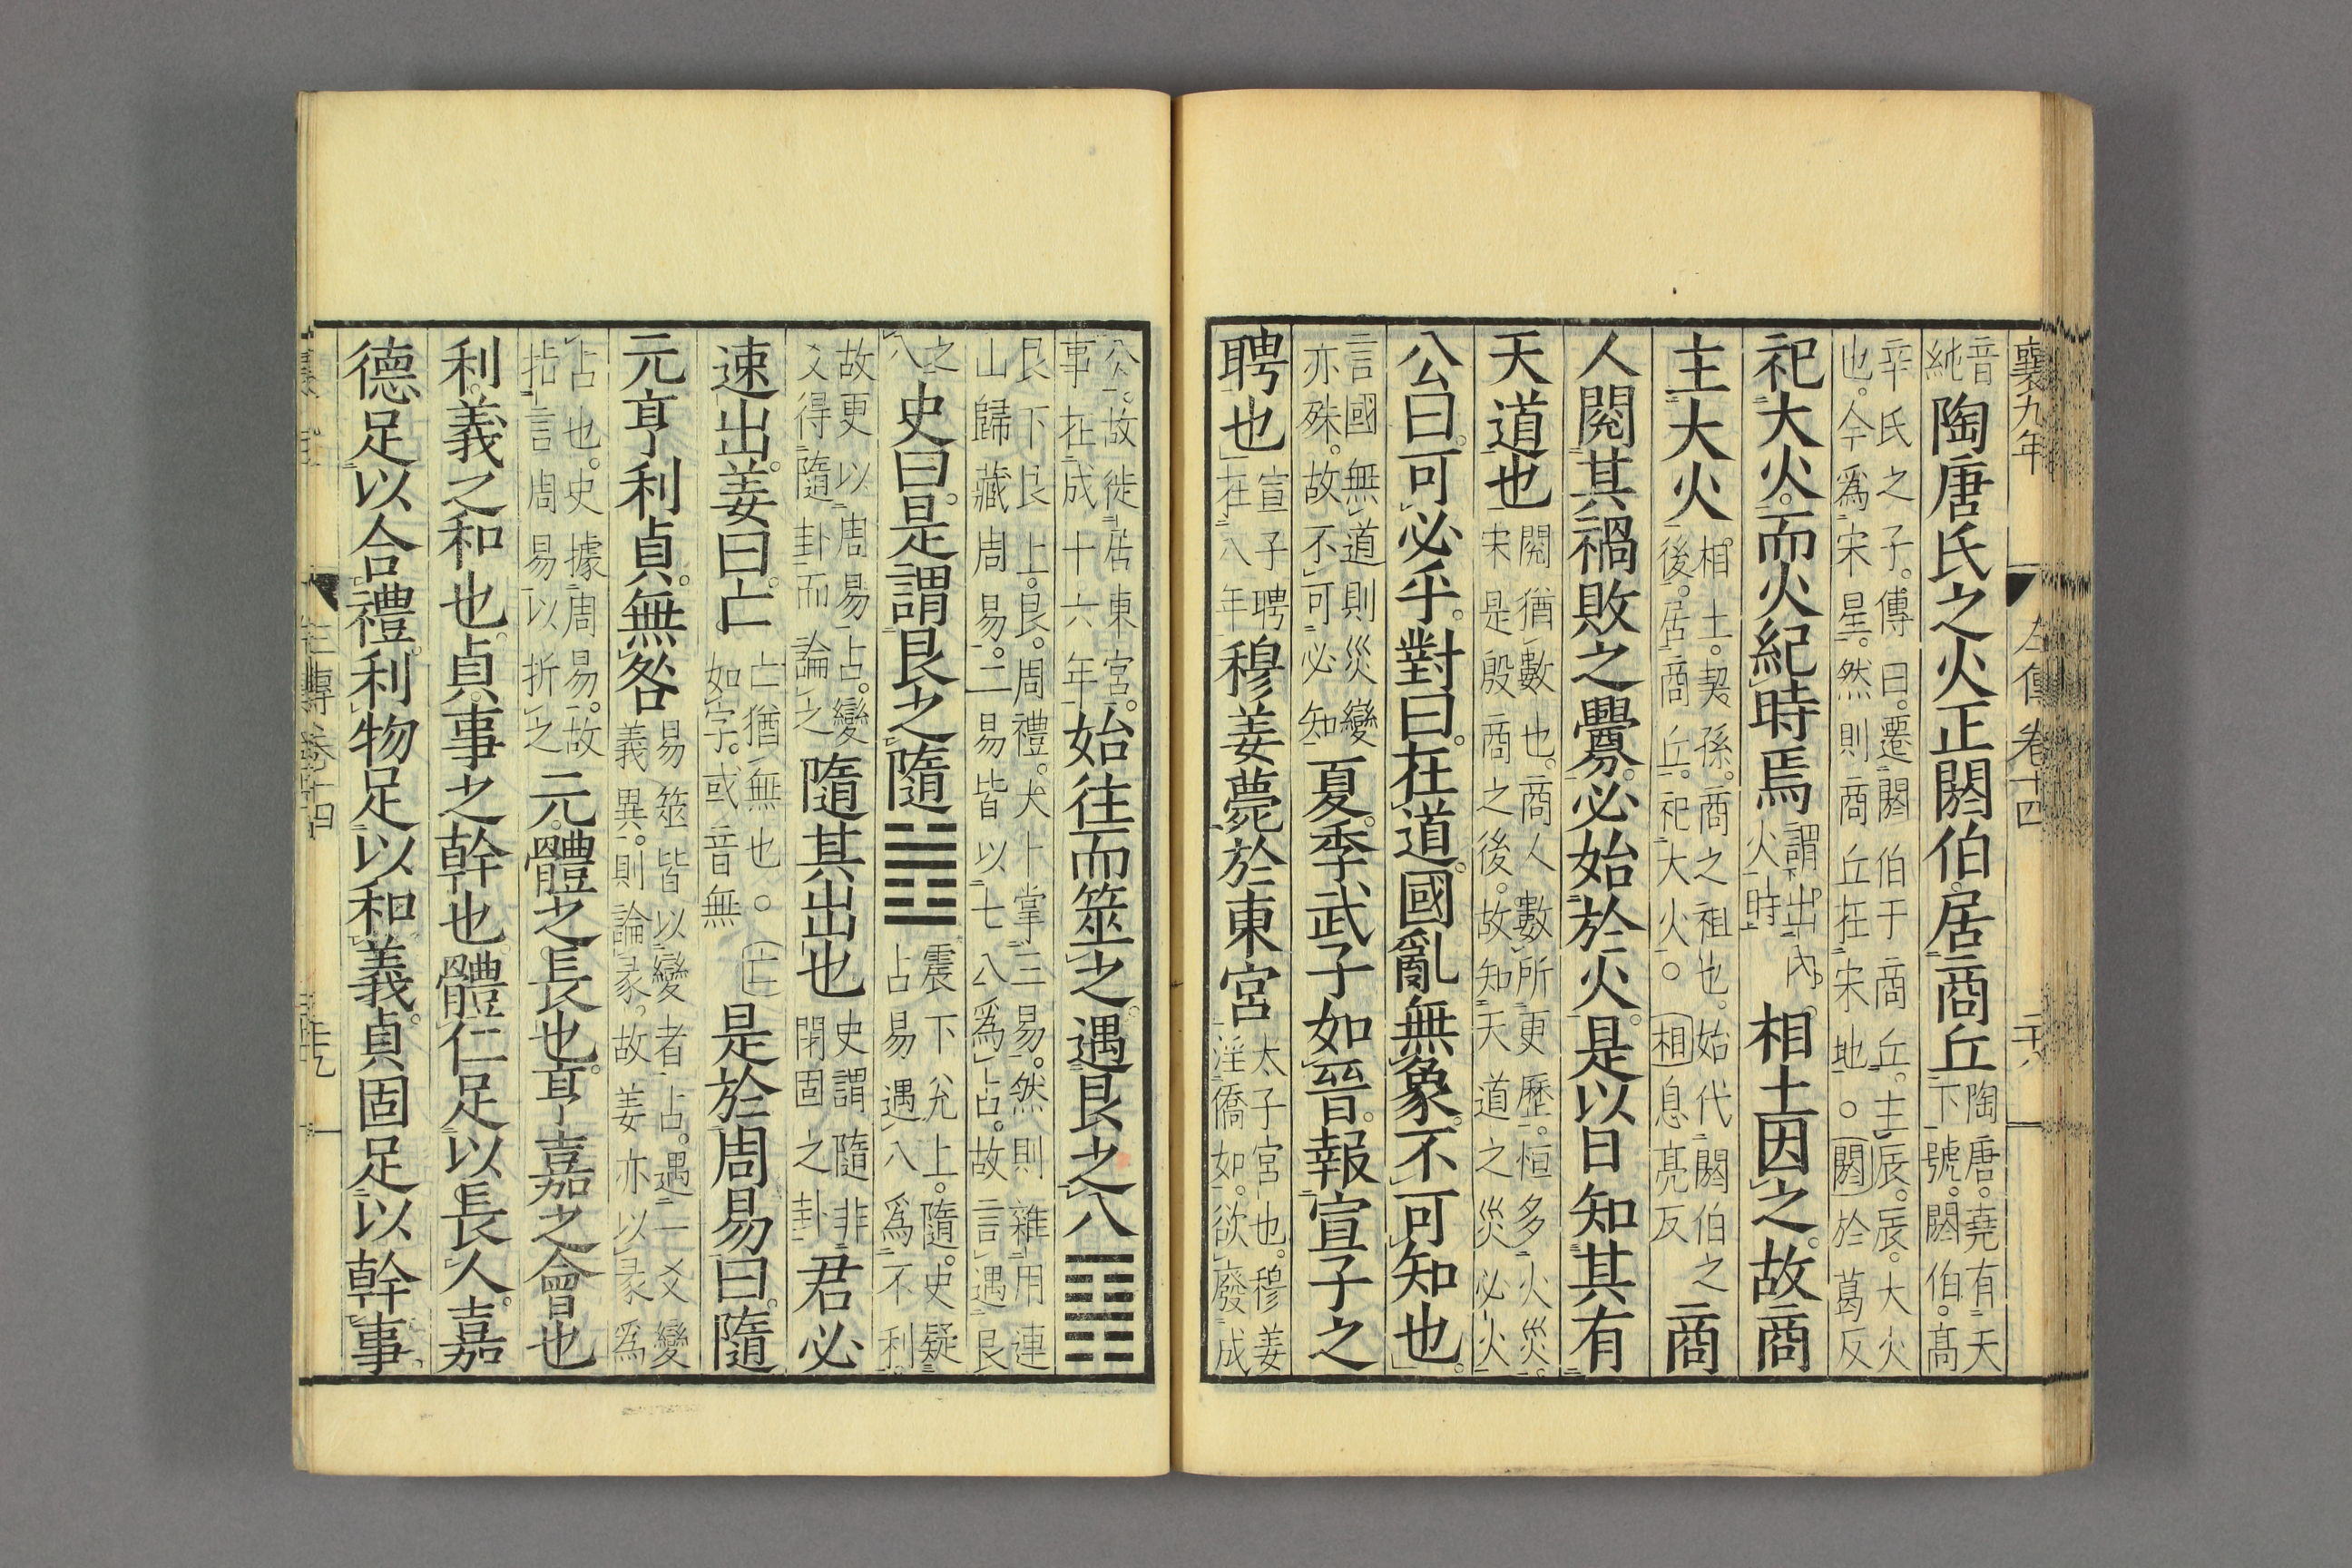 襄九年
左傳卷十四
音
純
陶唐氏之火正閼伯居商丘
陶唐堯有天
下號閼伯高
辛氏之子傳曰遷閼伯于商丘主辰辰大火
也今爲宋星然則商丘在宋地○閼於葛反
祀大火而火紀時焉
謂出內
火時
相土因之故商
主大火
相土契孫商之祖也始代閼伯之
後居商丘祀大火○相息亮反
商
人閱其禍敗之釁必始於火是以日知其有
天道也
閱猶數也商人數所更歷恒多火災
宋是殷商之後故知天道之災必火
公曰可必乎對曰在道國亂無象不可知也
言國無道則災變
亦殊故不可必知
夏季武子如晉報宣子之
聘也
宣子聘
在八年
穆姜薨於東宮
太子宮也穆姜
淫僑如欲廢成
公故徙居東宮
事在成十六年
始往而筮之遇艮之八䷳
艮下艮上艮周禮大卜掌三易然則雜用連
山歸藏周易二易皆以七八爲占故言遇艮
之
八
史曰是謂艮之隨䷐
震下兌上隨史疑
占易遇八爲不利
故更以周易占變
爻得隨卦而論之
隨其出也
史謂隨非
閉固之卦
君必
速出姜曰亡
亡猶無也○亡
如字或音無
是於周易曰隨
元亨利貞無咎
易筮皆以變者占遇一爻變
義異則論彖故姜亦以彖爲
占也史據周易故
指言周易以折之
元體之長也亨嘉之會也
利義之和也貞事之幹也體仁足以長人嘉
德足以合禮利物足以和義貞固足以幹事